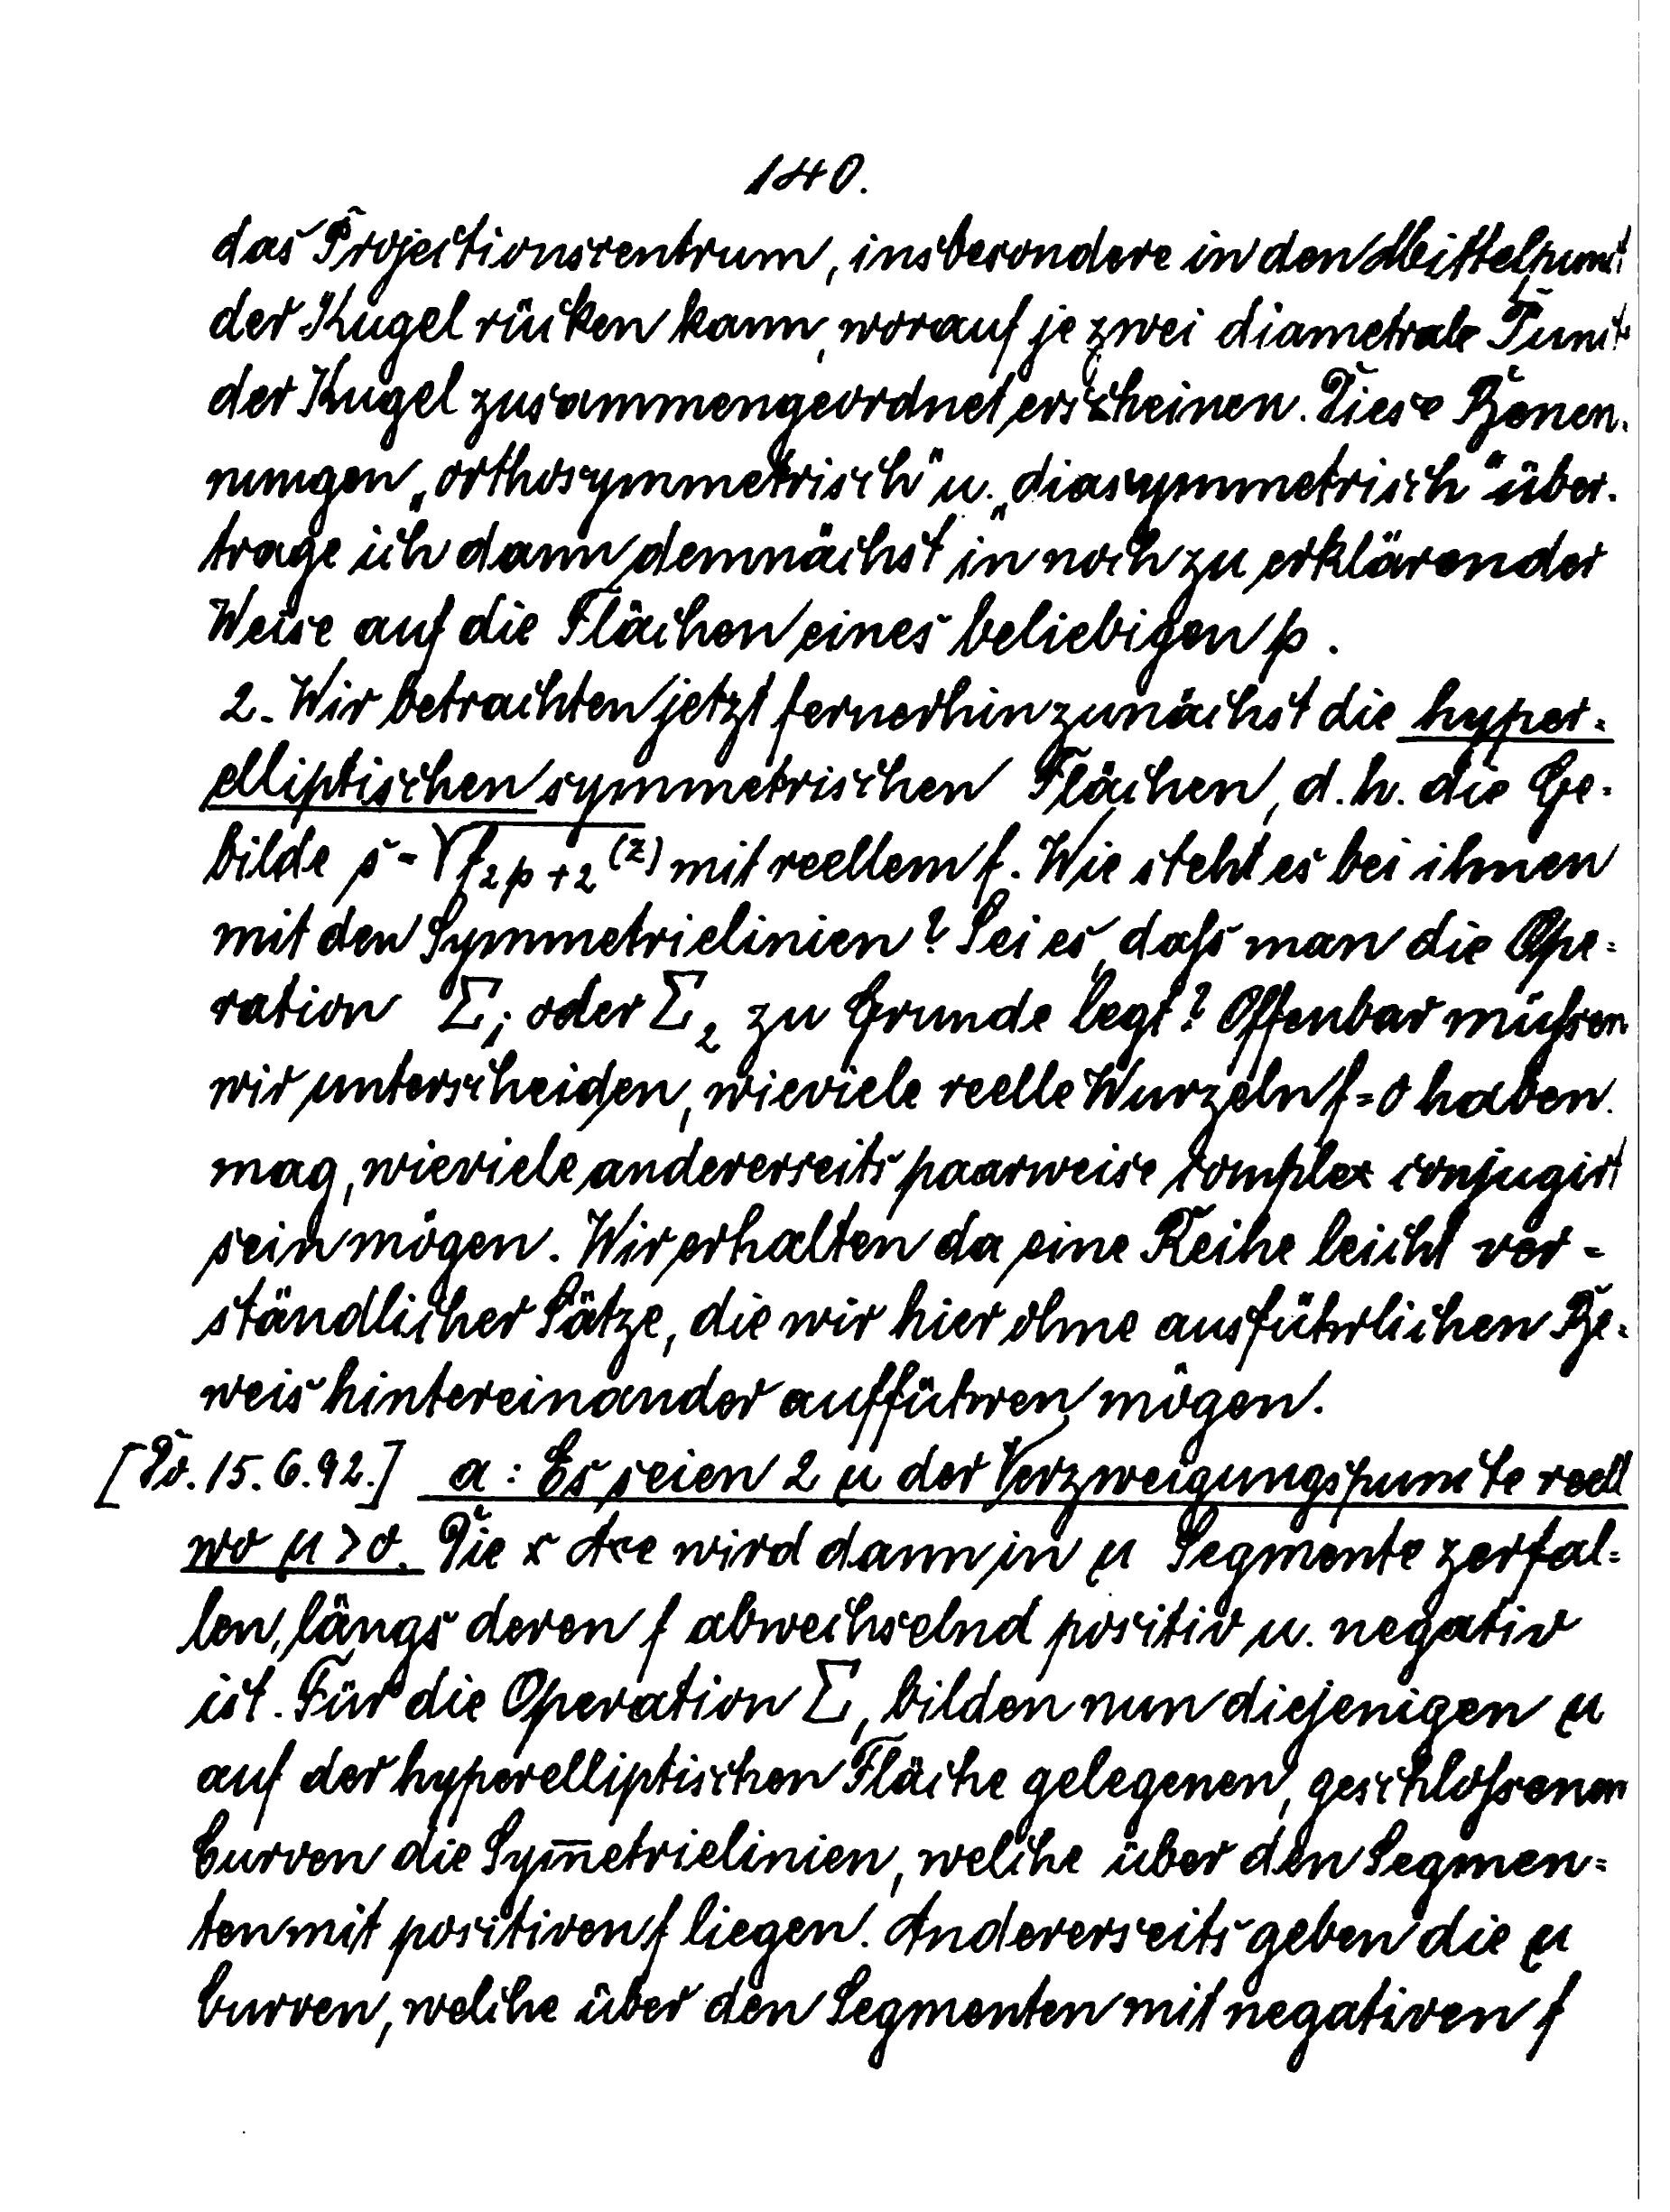 140.
das Projectionscentrum, insbesondere in den Mittelpunct
der Kugel rücken kann, worauf je zwei diametrale Punct
der Kugel zusammengeordnet erscheinen. Diese Benen-
nungen „orthosymmetrisch" u. „diasymmetrisch" über-
trage ich dann demnächst in noch zu erklärender
Weise auf die Flächen eines beliebigen p.
2. Wir betrachten jetzt fernerhin zunächst die hyper=
elliptischen symmetrischen Flächen, d.h. die Ge-
bilde s = √f₂ₚ₊₂(z) mit reellem f. Wie steht es bei ihnen
mit den Symmetrielinien? Sei es, daß man die Ope=
ration Σ₁ oder Σ₂ zu Grunde legt? Offenbar müßen
wir unterscheiden, wieviele reelle Wurzeln f=0 haben
mag, wieviele andererseits paarweise complex conjugirt
sein mögen. Wir erhalten da eine Reihe leicht ver=
ständlicher Sätze, die wir hier ohne ausführlichen Be-
weis hintereinander aufführen mögen.
[Do. 15.6.92.] a: Es seien 2 μ der Verzweigungspuncte reell
wo μ>0. Die x Axe wird dann in μ Segmente zerfal=
len, längs deren f abwechselnd positiv u. negativ
ist. Für die Operation Σ₁ bilden nun diejenigen μ
auf der hyperelliptischen Fläche gelegenen, geschloßenen
Curven die Sym̅etrielinien, welche über den Segmen=
ten mit positiven f liegen. Andererseits geben die μ
Curven, welche über den Segmenten mit negativen f